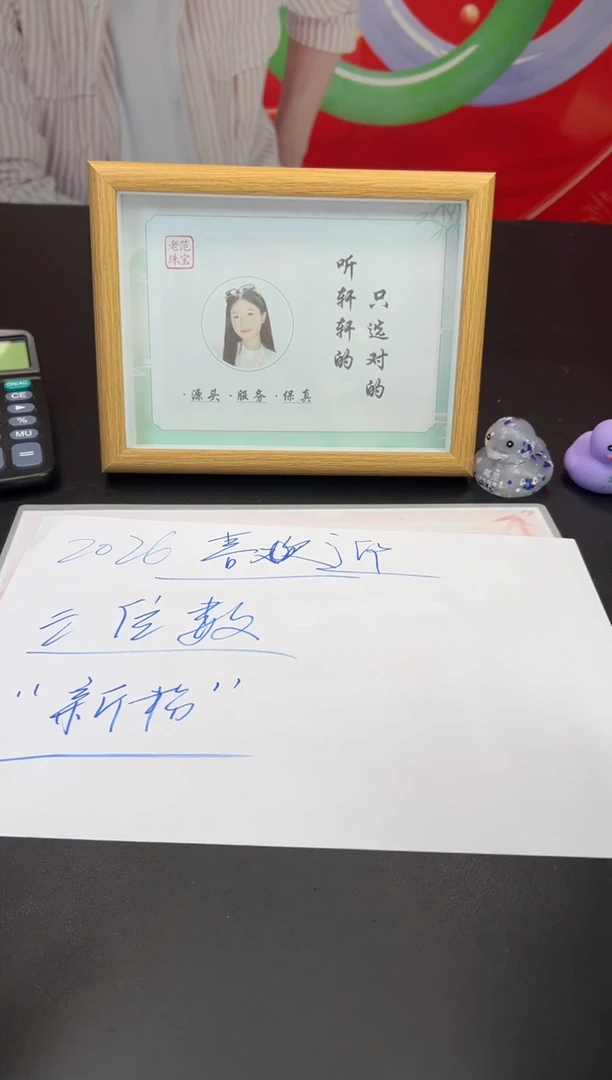 老范
珠宝
听轩轩的
只选对的
·源头·服务·保真
ON/AC
CE
%
MU
=
2026 喜欢近
三位数
"新粉"